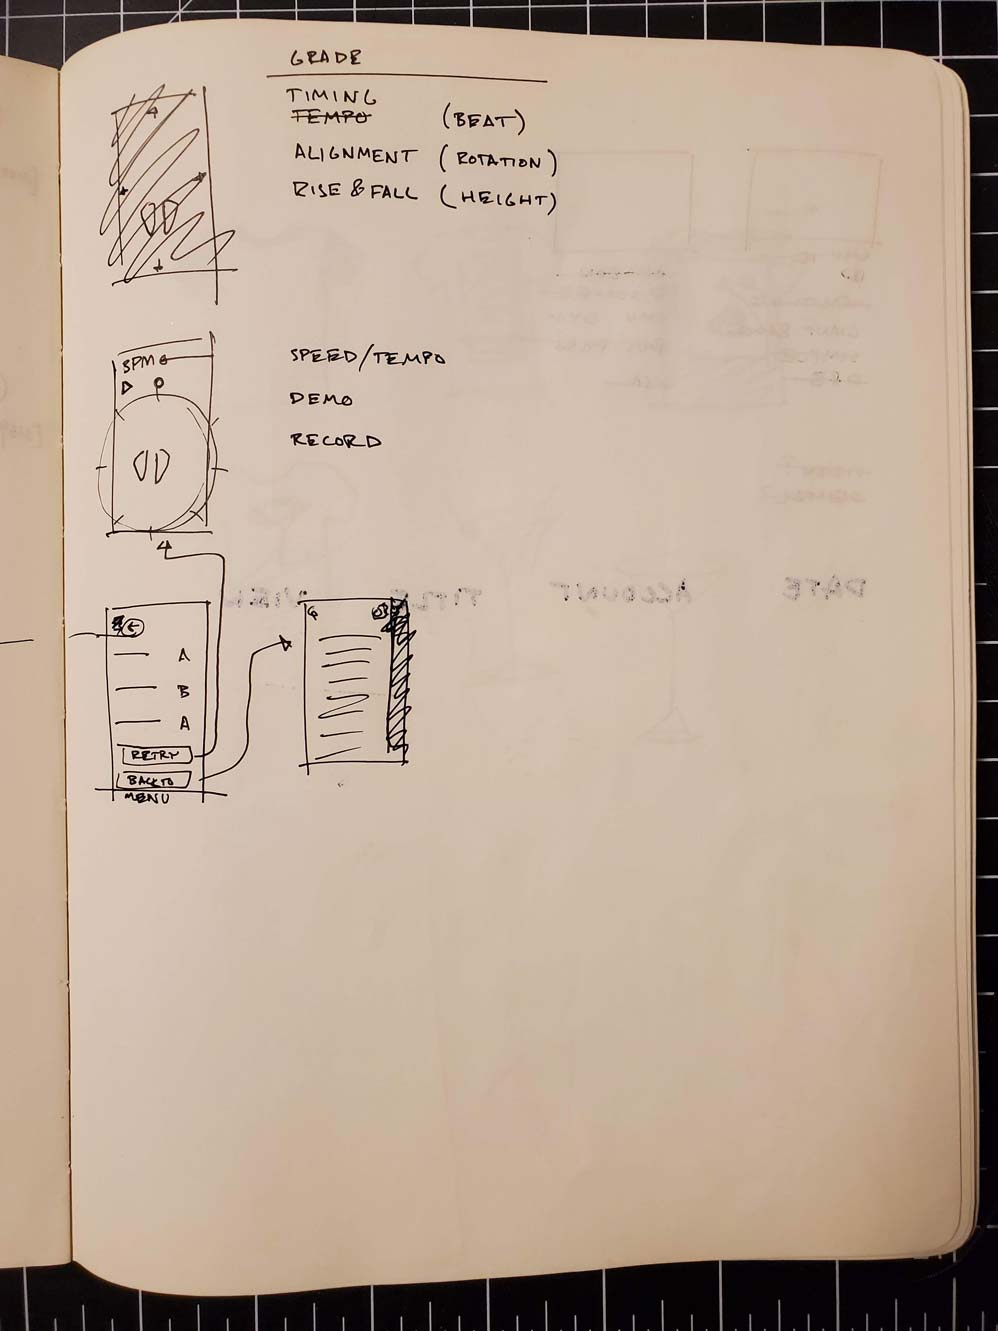 GRADE
TIMING
TEMPO (BEAT)
ALIGNMENT (ROTATION)
RISE & FALL (HEIGHT)
BPM
SPEED/TEMPO
DEMO
RECORD
A
B
A
RETRY
BACK TO
MENU
DATE ACCOUNT TITLE VIEW